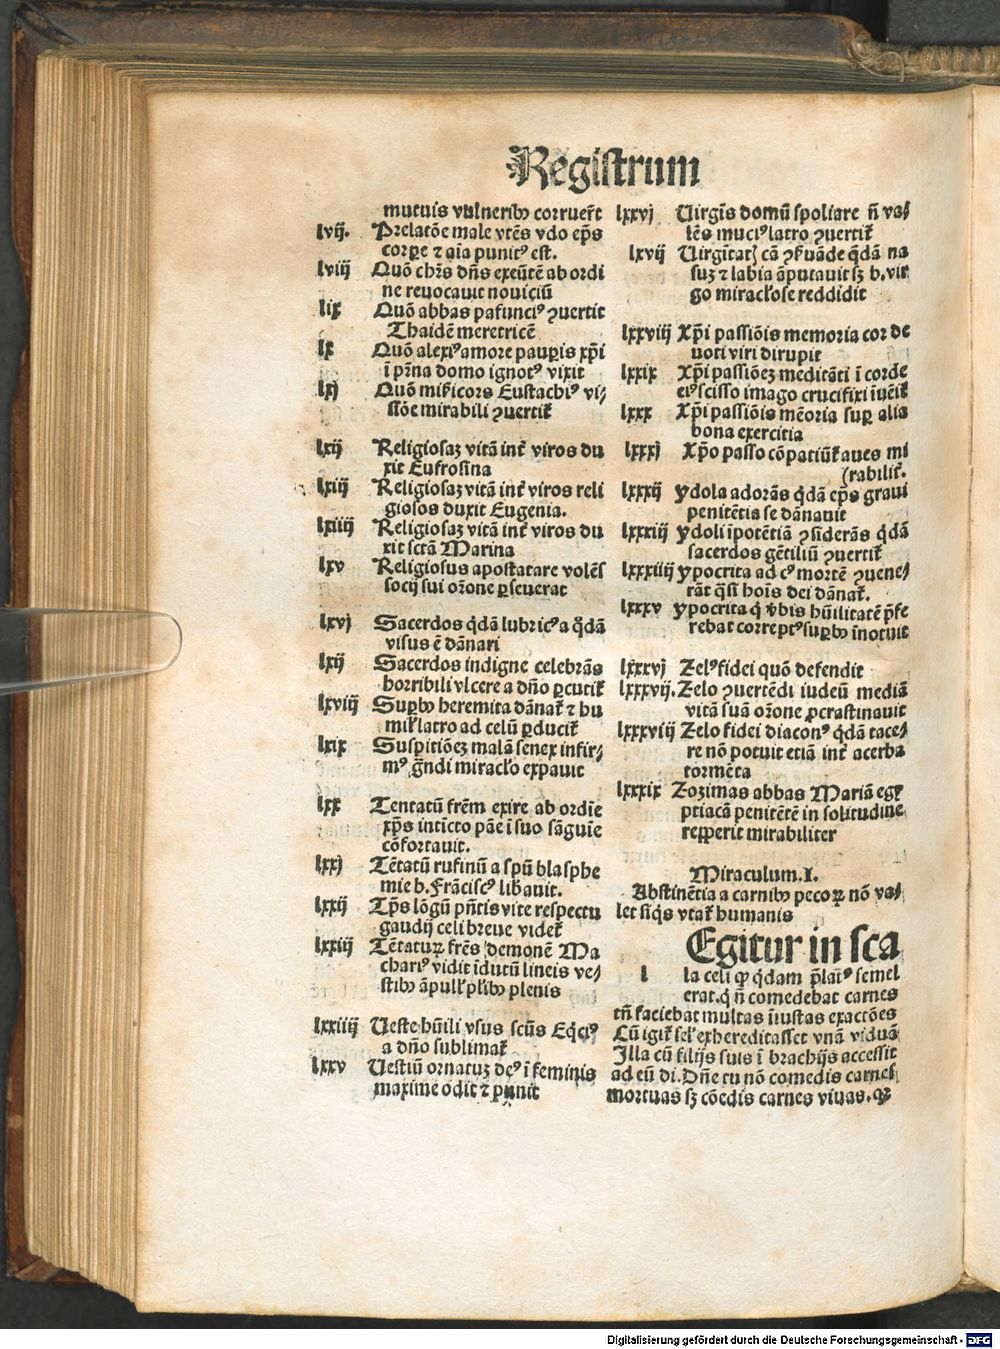 Registrum
mutuis vulneribꝰ corruer̄t
lvij. Prelatōe male vtēs vdo ep̄s
corꝑe ⁊ aīa punitꝰ est.
lviij Quō chr̄s dn̄s exeūtē ab ordi
ne reuocauit nouiciū
lix Quō abbas pafunciꝰ ꝯuertit
Thaidē meretricē
lx Quō alexiꝰ amore pauꝑis xp̄i
ī pr̄na domo ignotꝰ vixit
lxj Quō mīs̄icors Eustachiꝰ vi/
ssōe mirabili ꝯuertit̄
lxij Religiosaȝ vitā int̄ viros du
xit Eufrosina
lxiij Religiosaȝ vitā int̄ viros reli
giosos duxit Eugenia.
lxiiij Religiosaȝ vitā int̄ viros du
xit sctā Marina
lxv Religiosus apostatare volēs
socij sui orōne ꝑseuerat
lxvj Sacerdos qdā lubricꝰ a qdā
visus ē dānari
lxij Sacerdos indigne celebrās
horribili vlcere a dn̄o ꝑcutit̄
lxviij Suꝑbꝰ heremita dānat̄ ⁊ hu
mil̄ latro ad celū ꝑducit̄
lxix Suspitiōeȝ malā senex infir/
mꝰ gn̄di miracl̄o expauit
lxx Tentatū fr̄em exire ab ordīe
xp̄s intīcto pāe ī suo sāguīe
cōfortauit.
lxxj Tētatū rufinū a spū blasphe
mie b. Frāciscꝰ lib̄auit.
lxxij Tp̄s lōgū pn̄tis vite respectu
gaudij celi breue videt̄
lxxiij Tētatuꝝ fr̄es demonē Ma
chariꝰ vidit īdutū lineis ve/
stibꝰ āpull̄ pl̄ibꝰ plenis
lxxiiij Ueste hūili vsus scūs Eqciꝰ
a dn̄o sublimat̄
lxxv Uestiū ornatuȝ deꝰ ī feminis
maxime odit ⁊ punit
lxxvj Uirgīs domū spoliare n̄ va/
lēs muciꝰ latro ꝯuertit̄
lxvij Uirgītatȩ cā ꝯẜuāde qdā na
suȝ ⁊ labia āputauit sȝ b. vir
go miracl̄ose reddidit
lxxviij Xp̄i passiōis memoria cor de
uoti viri dirupit
lxxix Xp̄i passiōeȝ meditāti ī corde
eiꝰ scisso imago crucifixi īuēit̄
lxxx Xp̄i passiōis mēoria suꝑ alia
bona exercitia
lxxxj Xp̄o passo cōpatiūt̄ aues mi
(rabilit̄.
lxxxij ydola adorās qdā ep̄s graui
penitētia se dānauit
lxxxiij ydoli īpotētiā ꝯsiderās qdā
sacerdos gētiliū ꝯuertit̄
lxxxiiij ypocrita ad cꝰ mortē ꝯuene/
rāt qsi hoīs dei dānat̄.
lxxxv ypocrita q v̄bis hūilitatē p̄fe
rebat correptꝰ suꝑbꝰ īnotuit
lxxxvj Zelꝰ fidei quō defendit
lxxxvij. Zelo ꝯuertēdi iudeū mediā
vitā suā orōne ꝓcrastinauit
lxxxviij Zelo fidei diaconꝰ qdā tace/
re nō potuit etiā int̄ acerba
tormēta
lxxxix Zozimas abbas Mariā egy
ptiacā penitētē in solitudine
reꝑperit mirabiliter
Miraculum. I.
Abstinētia a carnibꝰ pecoꝝ nō va/
let siqs vtat̄ humanis
Egitur in sca
l la celi ꝙ qdam pl̄atꝰ semel
erat. q n̄ comedebat carnes
tn̄ faciebat multas īiustas exactōes
Cū igit̄ sel̄ exhereditasset vnā viduā
Illa cū filijs suis ī brachijs accessit
ad eū di. Dn̄e tu nō comedis carnes
mortuas sȝ cōedis carnes viuas. qꝛ
Digitalisierung gefördert durch die Deutsche Forschungsgemeinschaft - DFG